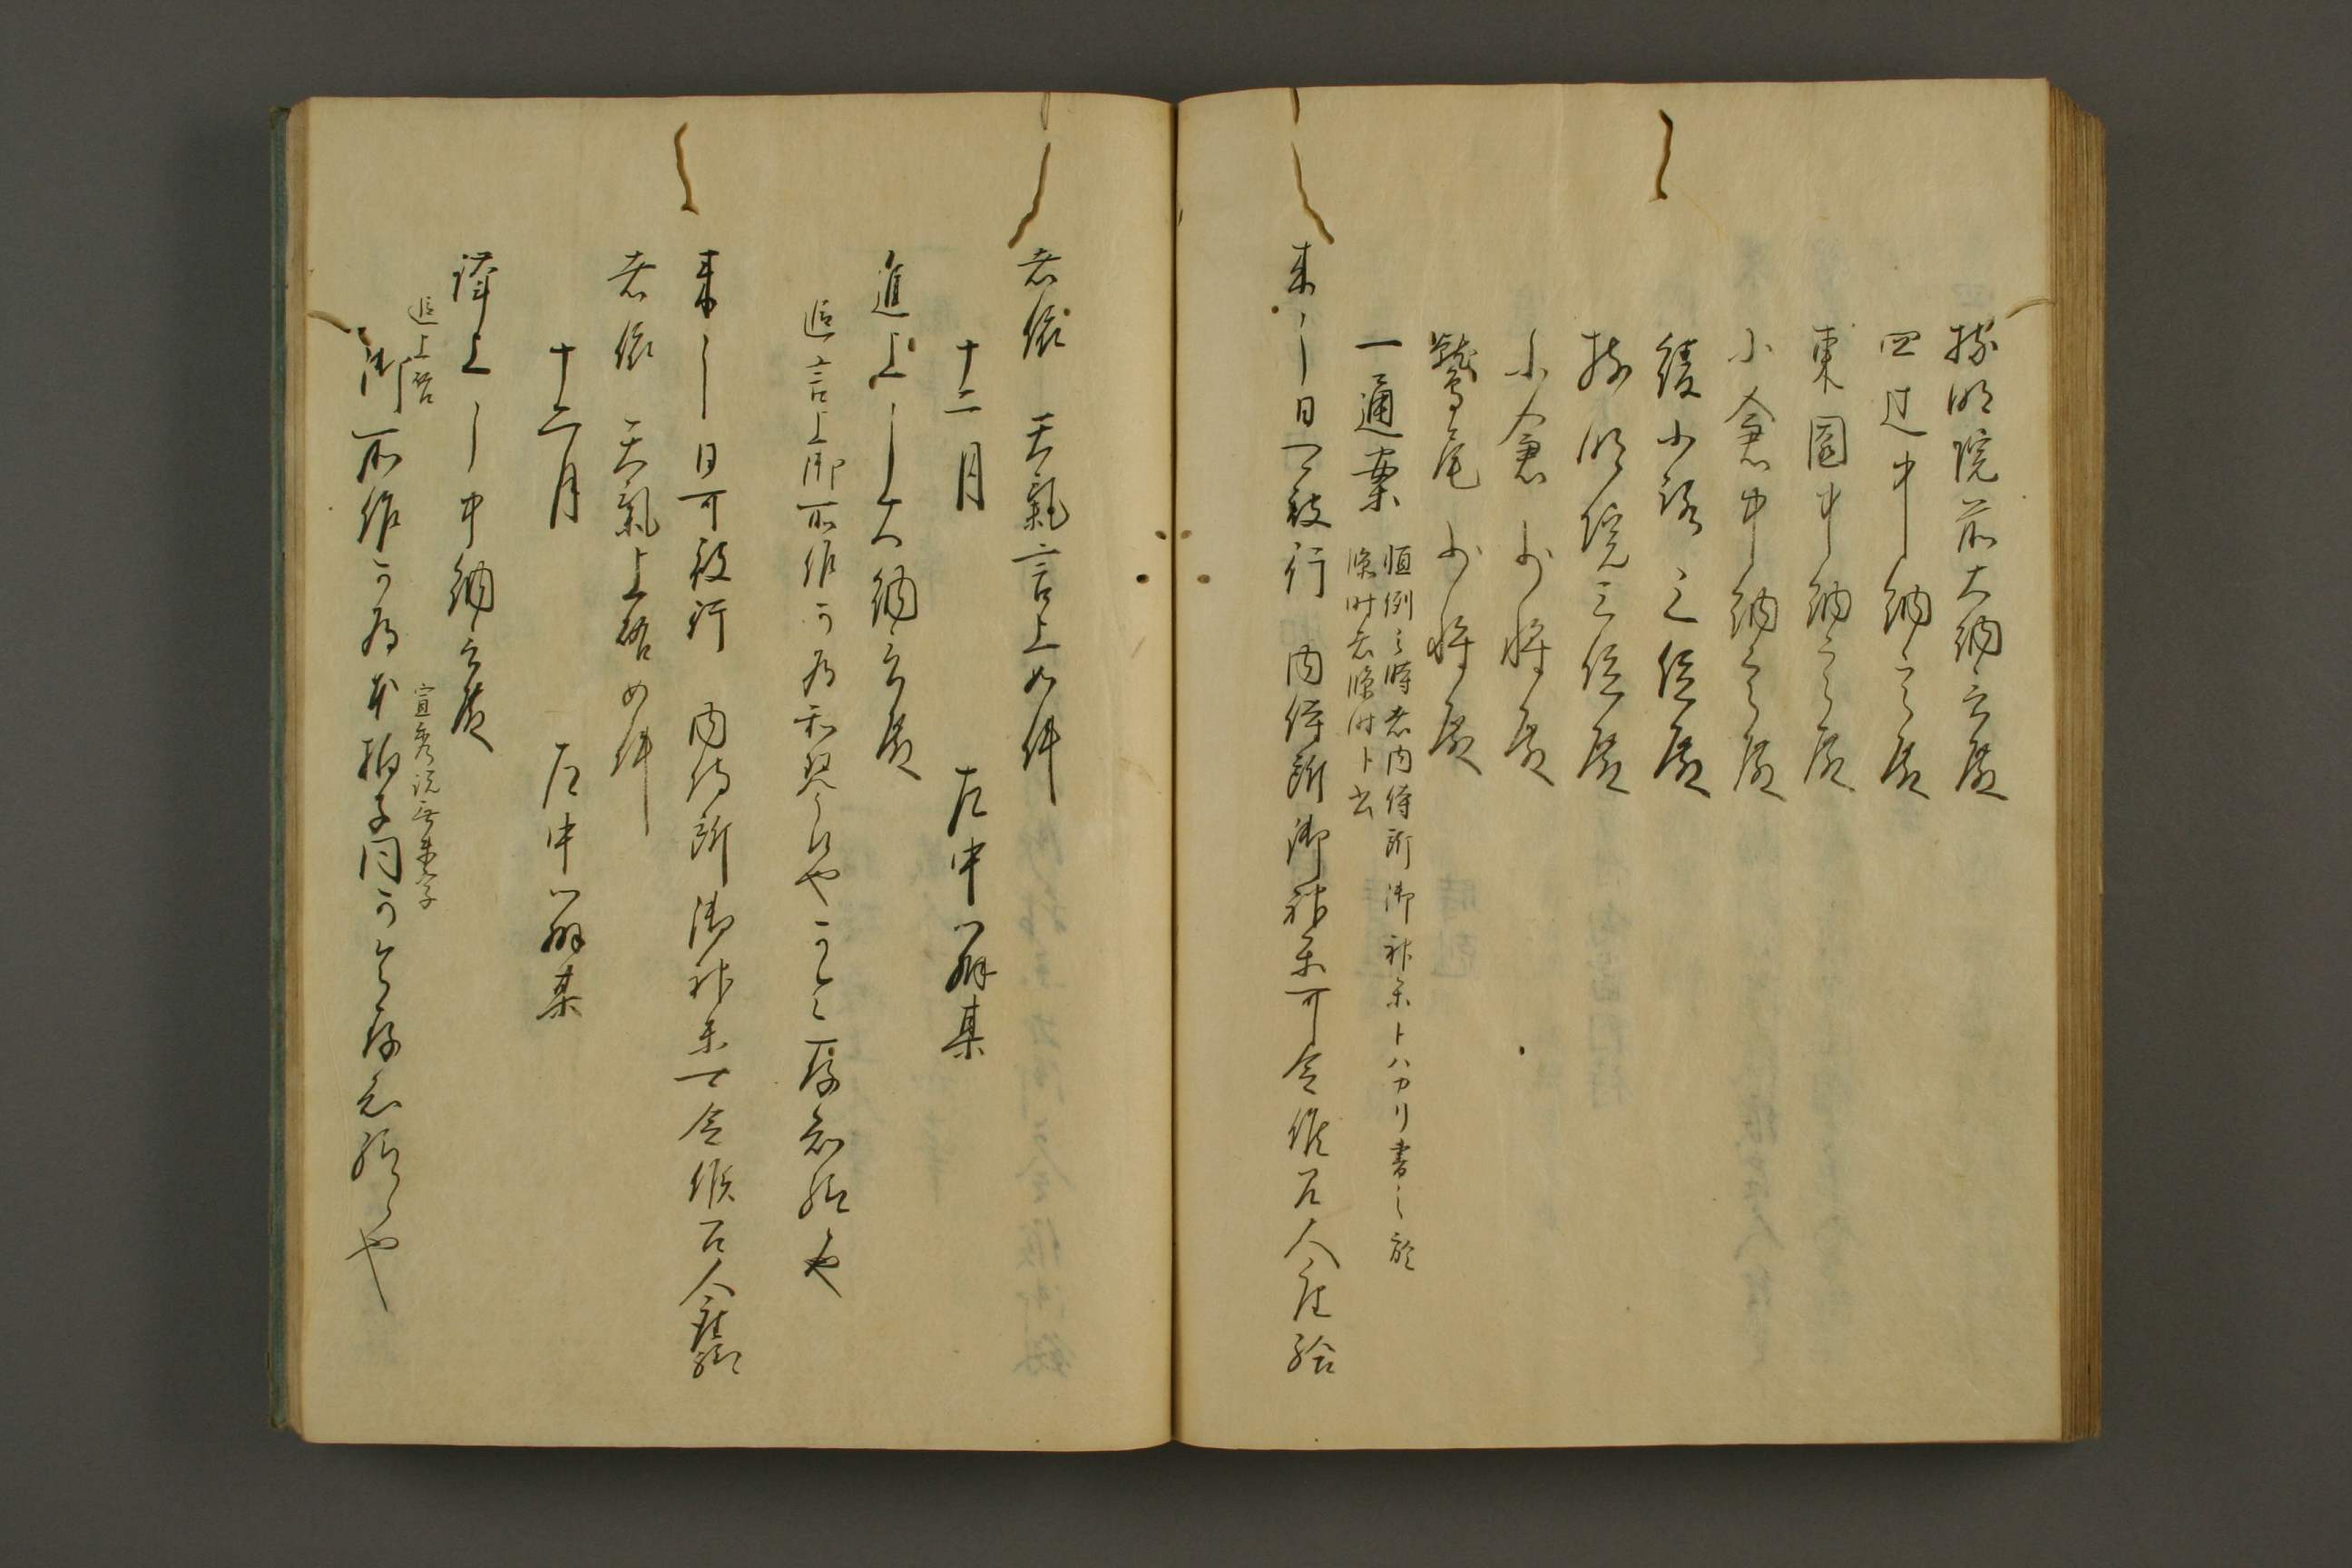 持明院前大納言殿
四辻中納言殿
東園中納言殿
小倉中納言殿
綾小路三位殿
持明院三位殿
小倉少将殿
鷲尾少将殿
一通案 恒例之時者内侍所御神楽トハカリ書之於
臨時者臨時ト云
来ー日可被行 内侍所御神楽可令候召人座給
者依 天氣言上如件
十二月 左中弁某
進上ー大納言殿
追言上御所作可為和琴候也可令存知給也
来ー日可被行 内侍所御神楽可令候召人座給
者依 天氣上啓如件
十二月 左中弁某
謹上ー中納言殿
追上啓 宣秀説無来字
御所作可為本拍子同可令存知給也